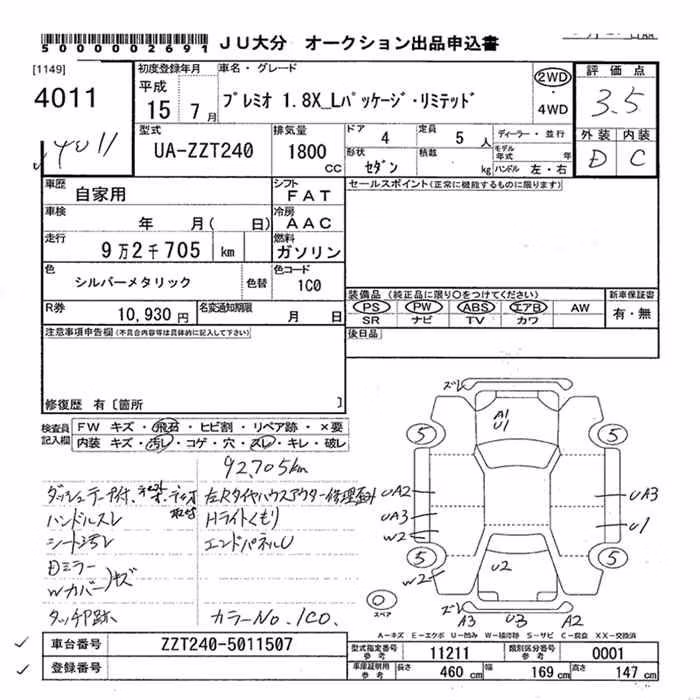 5000002691 JU大分 オークション出品申込書
[1149]
4011
4011
初度登録年月
平成
15年7月
車名・グレード
プレミオ 1.8X_Lパッケージ・リミテッド
2WD
・
4WD
評価点
3.5
外装 内装
D C
型式
UA-ZZT240
排気量
1800
CC
ドア 4
定員 5 人
形状 セダン
積載 kg
ディーラー・並行
モデル年式 年
ハンドル 左・右
車歴 自家用
シフト FAT
車検 年 月( 日)
冷房 AAC
走行 9万2千705 km
燃料 ガソリン
色 シルバーメタリック
色替
色コード 1C0
R券 10,930円
名変通知期限 月 日
セールスポイント(正常に機能するものに限ります)
装備品(純正品に限り○をつけてください)
PS PW ABS エアB AW
SR ナビ TV カワ
新車保証書
有・無
後日品
注意事項申告欄(不具合内容等は具体的に記入して下さい)
修復歴 有〔箇所 〕
検査員記入欄
FW キズ・飛石・ヒビ割・リペア跡・×要
内装 キズ・汚レ・コゲ・穴・スレ・キレ・破レ
92,705km
ハンドルスレ
シート汚レ
Dミラー
Wカバー キズ
タッチP跡
左Rタイヤハウスアウター修理歪み
Hライトくもり
エンドパネルU
カラーNo. 1C0.
ズレ
A1
U1
5 5
UA2 UA3
UA3 U1
W2
5 5
W2
U2
ズレ
A3 U3 A2
0
スペア
A-キズ E-エクボ U-凹み W-補修跡 S-サビ C-腐食 XX-交換済
車台番号 ZZT240-5011507
登録番号
型式指定番号 参考 11211
類別区分番号 参考 0001
車庫証明用 参考 長さ 460 cm 幅 169 cm 高さ 147 cm